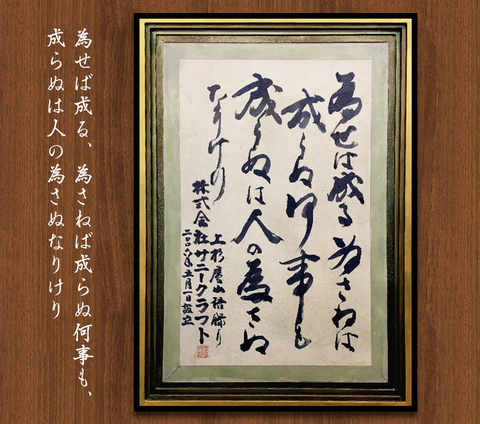 為せは成る為さねは
成らぬ何事も
成らぬは人の為さぬ
なりけり
上杉鷹山語録
株式会社サニークラフト
二〇〇六年五月一日設立
為せば成る、為さねば成らぬ何事も、
成らぬは人の為さぬなりけり